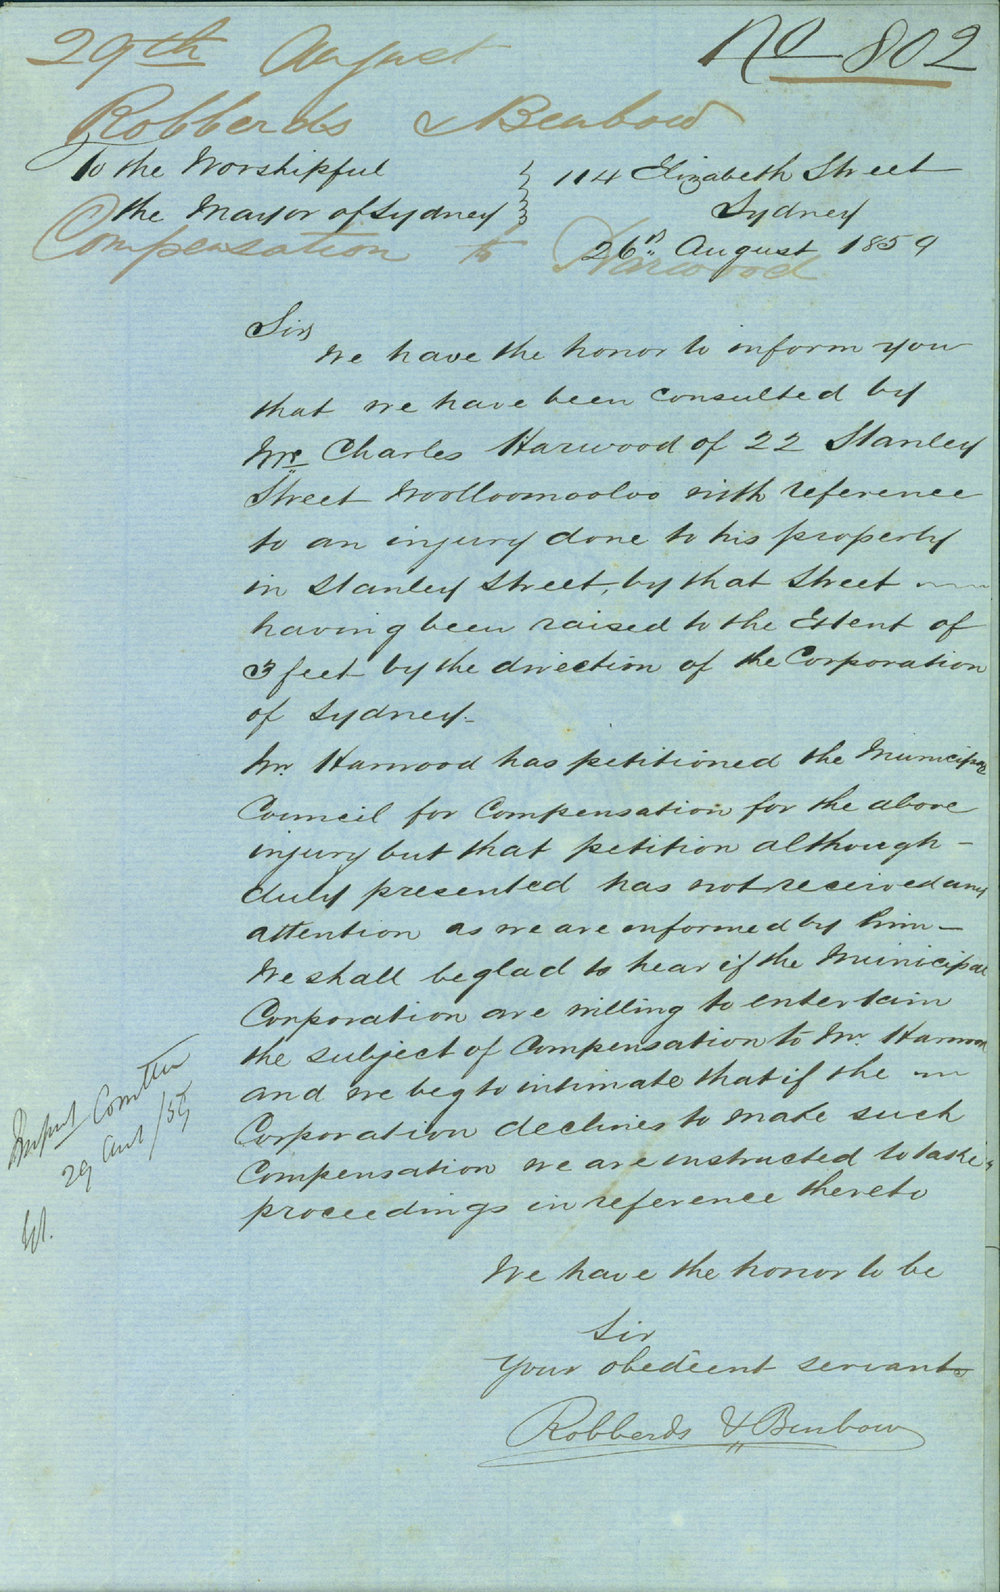 29th August
No 802
Robberds & Benbow
To the Worshipful
the Mayor of Sydney
114 Elizabeth Street
Sydney
26th August 1859
Compensation to Harwood
Sir,
We have the honor to inform you
that we have been consulted by
Mr Charles Harwood of 22 Stanley
Street Woolloomooloo with reference
to an injury done to his property
in Stanley Street, by that Street
having been raised to the Extent of
3 feet by the direction of the Corporation
of Sydney.
Mr. Harwood has petitioned the Municipal
Council for Compensation for the above
injury but that petition although -
duly presented has not received any
attention as we are informed by him -
We shall be glad to hear if the Municipal
Corporation are willing to entertain
the subject of Compensation to Mr. Harwood
and we beg to intimate that if the
Corporation declines to make such
Compensation we are instructed to take
proceedings in reference thereto
We have the honor to be
Sir
Your obedient servants
Robberds & Benbow
Improvt Comttee
29 Aut /59